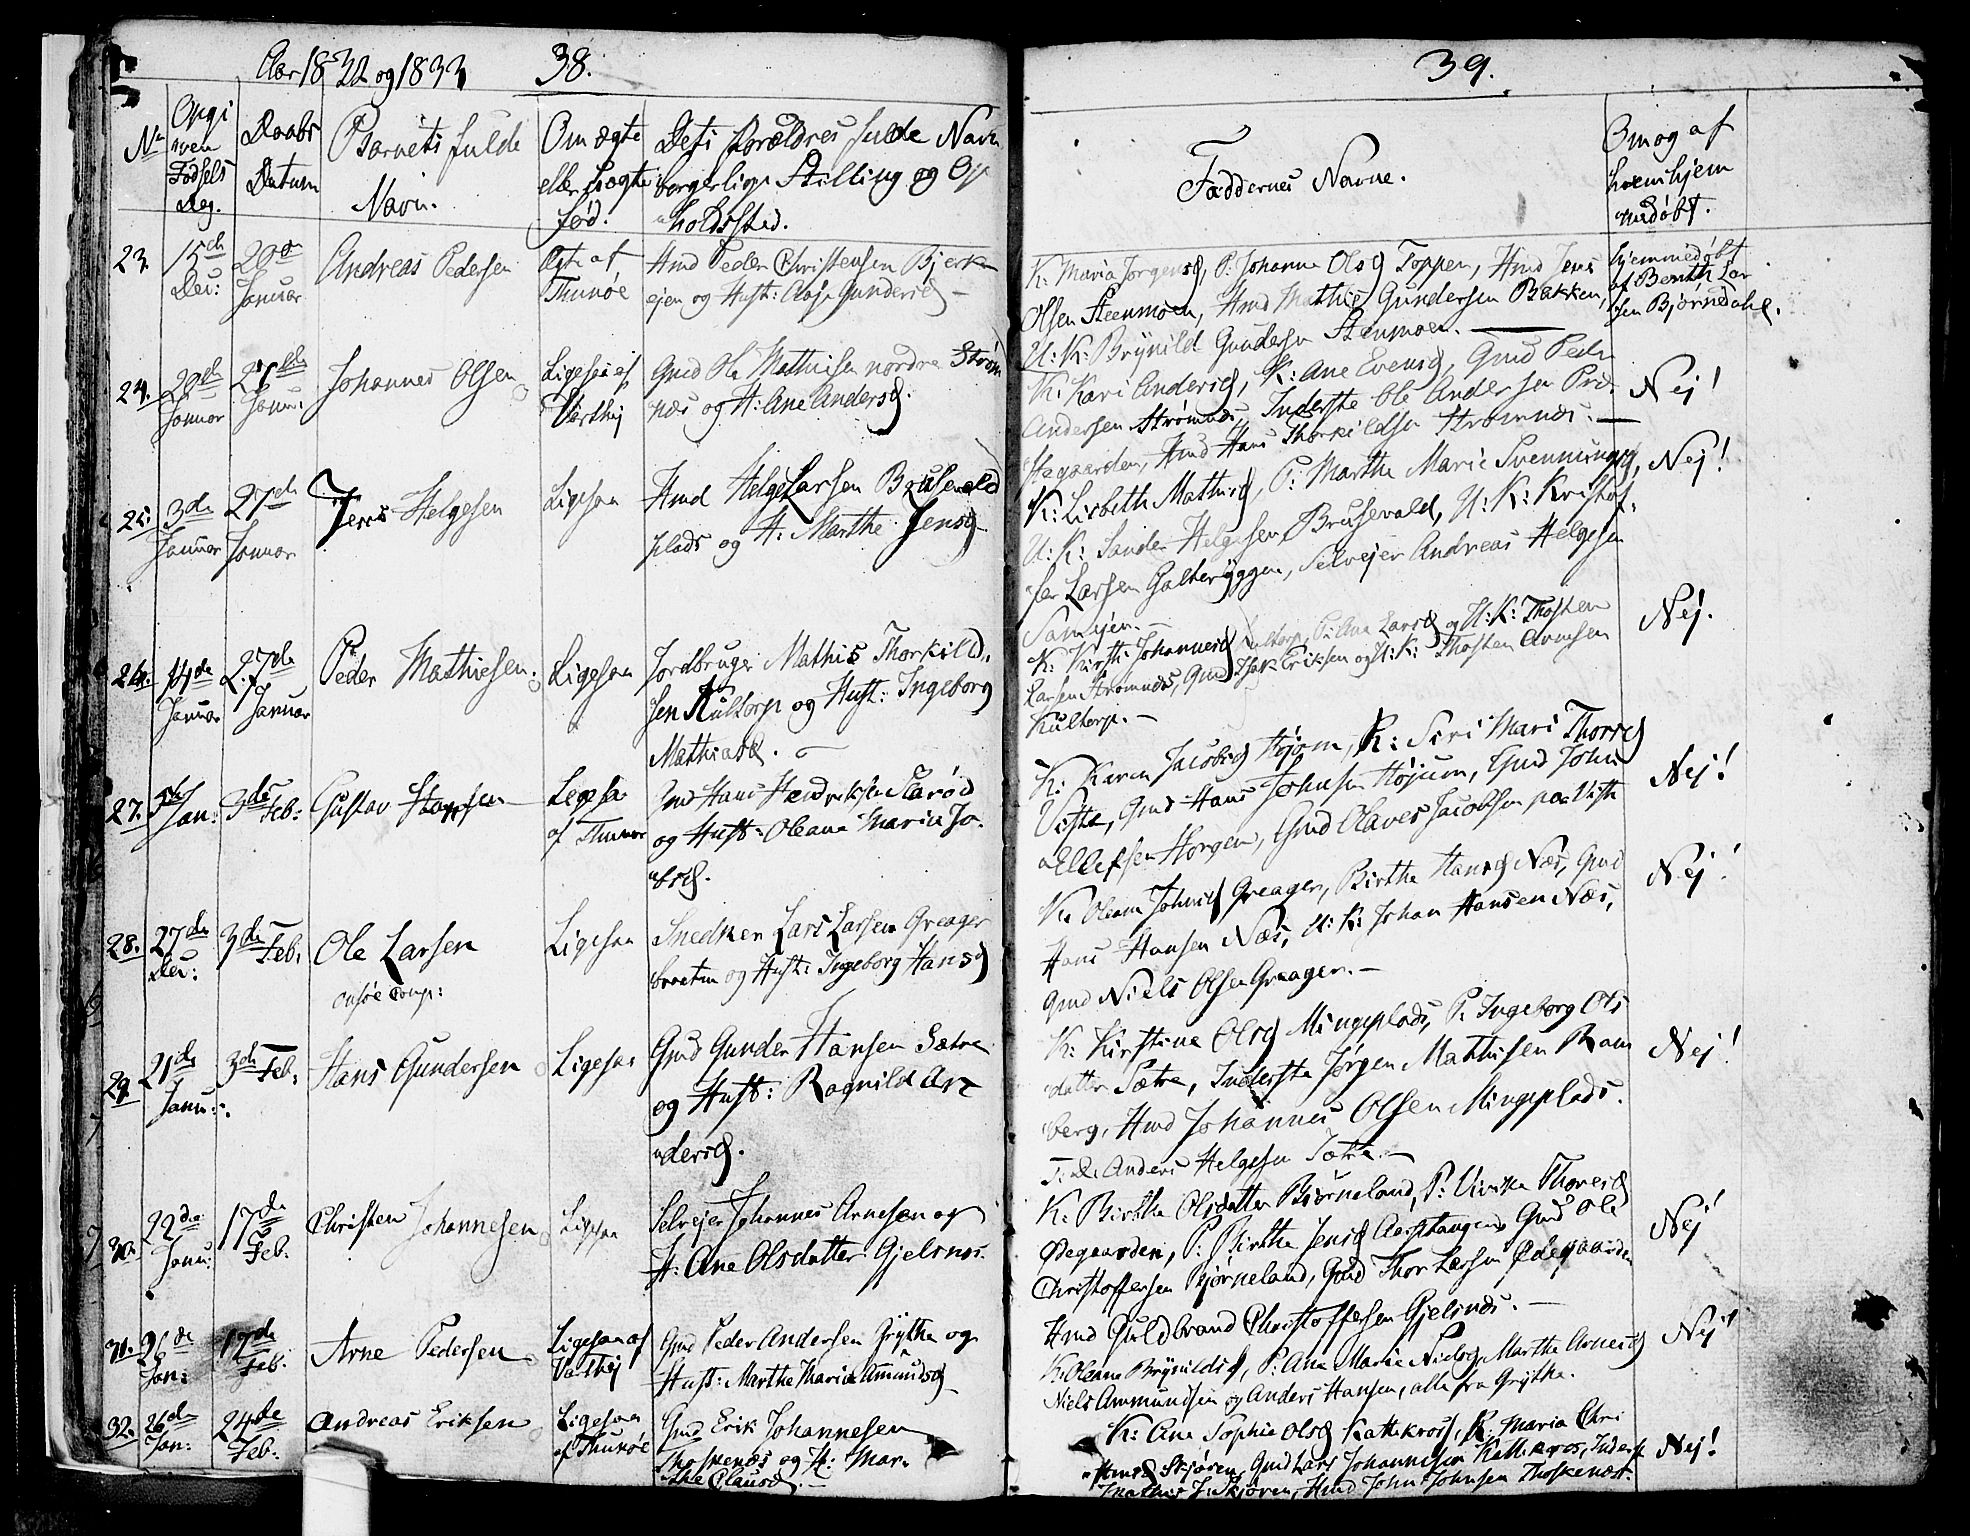 Aar 1832 og 1833
38.
No
Opgiven Fødsels Dag.
Daabs Datum
Barnets fulde Navn.
Om ægte eller Uægte fød:
Dets Forældres fulde Navn borgerlige Stilling og Opholdssted.
23.
15de Dec:
20de Januar
Andreas Pedersen
Ægte af Thunøe
Hmd Peder Christensen Bjerke
ejen og Hust: Gunders
24.
20de Januar
27de Janu:
Johannes Olsen
Ligesaa af Varthej
Gmd Ole Mathisen nordre Strøm
næs og H: Ane Andersd.
25.
3de Januar
27de Januar
Jens Helgesen
Ligesaa
Hmd Helge Larsen Brusevald
plads og H: Marthe Jensd
26.
14de Januar
27de Januar
Peder Mathiesen.
Ligesaa
Jordbruger Mathis Thorkild
sen Kultorp og Hust: Ingeborg
Mathiasd.
27.
Jan:
3de Feb:
Gustav Hansen
Ligesaa
af Thunøe
Gmd Hans Hendriksen
og Hust: Oleane Maria Ja
28.
27de Dec:
3de Feb:
Ole Larsen
onsøe Comp:
Ligesaa
Snedker Lars Larsen Greager
braaten og Hust: Ingeborg Hansd
29.
21de Janu:
3de Feb:
Hans Gundersen
Ligesaa
Gmd Gunder Hansen Sætre
og Hust: Ragnild An
dersd.
30.
22de Janu:
17de Feb.
Christen Johannesen
Ligesaa
Selvejer Johannes Arnesen og
H: Ane Olsdatter Gjelsnes.
31.
26de Jan:
17de Feb.
Arne Pedersen
Ligesaa af Varthej
Gmd Peder Andersen Grÿthe og
Hust: Marthe Maria Amundsd
32.
26de Jan:
24de Feb:
Andreas Eriksen
Ligesaa af Thunøe
Gmd Erik Johannesen
Thoskenæs og H: Mar
the Clausd.
39.
Faddernes Navne.
Om og af hvem hjemmedøbt.
K: Maria Jørgensd, P: Johanne Olsd Toppen, Hmd Jens
Olsen Steenmoen, Hmd Mathis Gundersen Bakken,
U: K: Brÿnild Gundersen Steenmoen.
hjemmedøbt
af Benth Lar
sen Bjørnedahl.
K: Kari Andersd, K: Ane Evensd, Gmd Peder
Andersen Strømnæs, Inderste Ole Andersen Præ
stegaarden, Hmd Hans Thorkildsen Strømnæs.
Nej!
K: Lisbeth Mathisd, P: Marthe Marie Svenningsd,
U: K: Sander Helgesen Brusevald, U: K: Kristof
fer Larsen Galterÿggen, Selvejer Andreas Helgesen
Nej!
K: Kirsti Johannesd Kultorp, P: Ane Larsd og U: K: Thosten
Larsen Strømnæs, Gmd Isak Eriksen og U: K: Thosten Arnesen
Kultorp.
Nej.
K: Karen Jacobsd Højum, K: Siri Mari Thorsd
Viste, Gmd Hans Johnsen Højum, Gmd John
Ellefsen Horgen, Gmd Olaves Jacobsen paa Viste
Nej!
K: Oleane Johnsd Greager, Birthe Hansd Næs, Gmd
Hans Hansen Næs, U: K: Johan Hansen Næs,
Gmd Niels Olsen Greager.
Nej!
K: Kirstine Olsd Mingeplads, P: Ingeborg Ols
datter Sætre, Inderste Jørgen Mathisen Ram
berg, Hmd Johannes Olsen Mingeplads.
Anders Helgesen Sætre.
Nej!
K: Birthe Olsdatter Bjørneland, P: Thoresd
Ødegaarden, P: Birthe Jensd, Gmd Ole
Christoffersen Bjørneland, Gmd Thor Larsen Ødegaarden
Hmd Guldbrand Christoffersen Gjelsnæs.
Nej!
K: Oleane Brÿnildsd, P: Ane Marie Nielsd, Marthe Arnesd
Niels Ammundsen og Anders Hansen, alle fra Grÿthe.
Nej!
K: Ane Sophie Olsd Kattekros, K: Maria Chri
Skjøren, Gmd Lars Johannesen Kattekros, Inderst
Skjøren, Hmd John Johnsen Thoskenæs.
Nej!